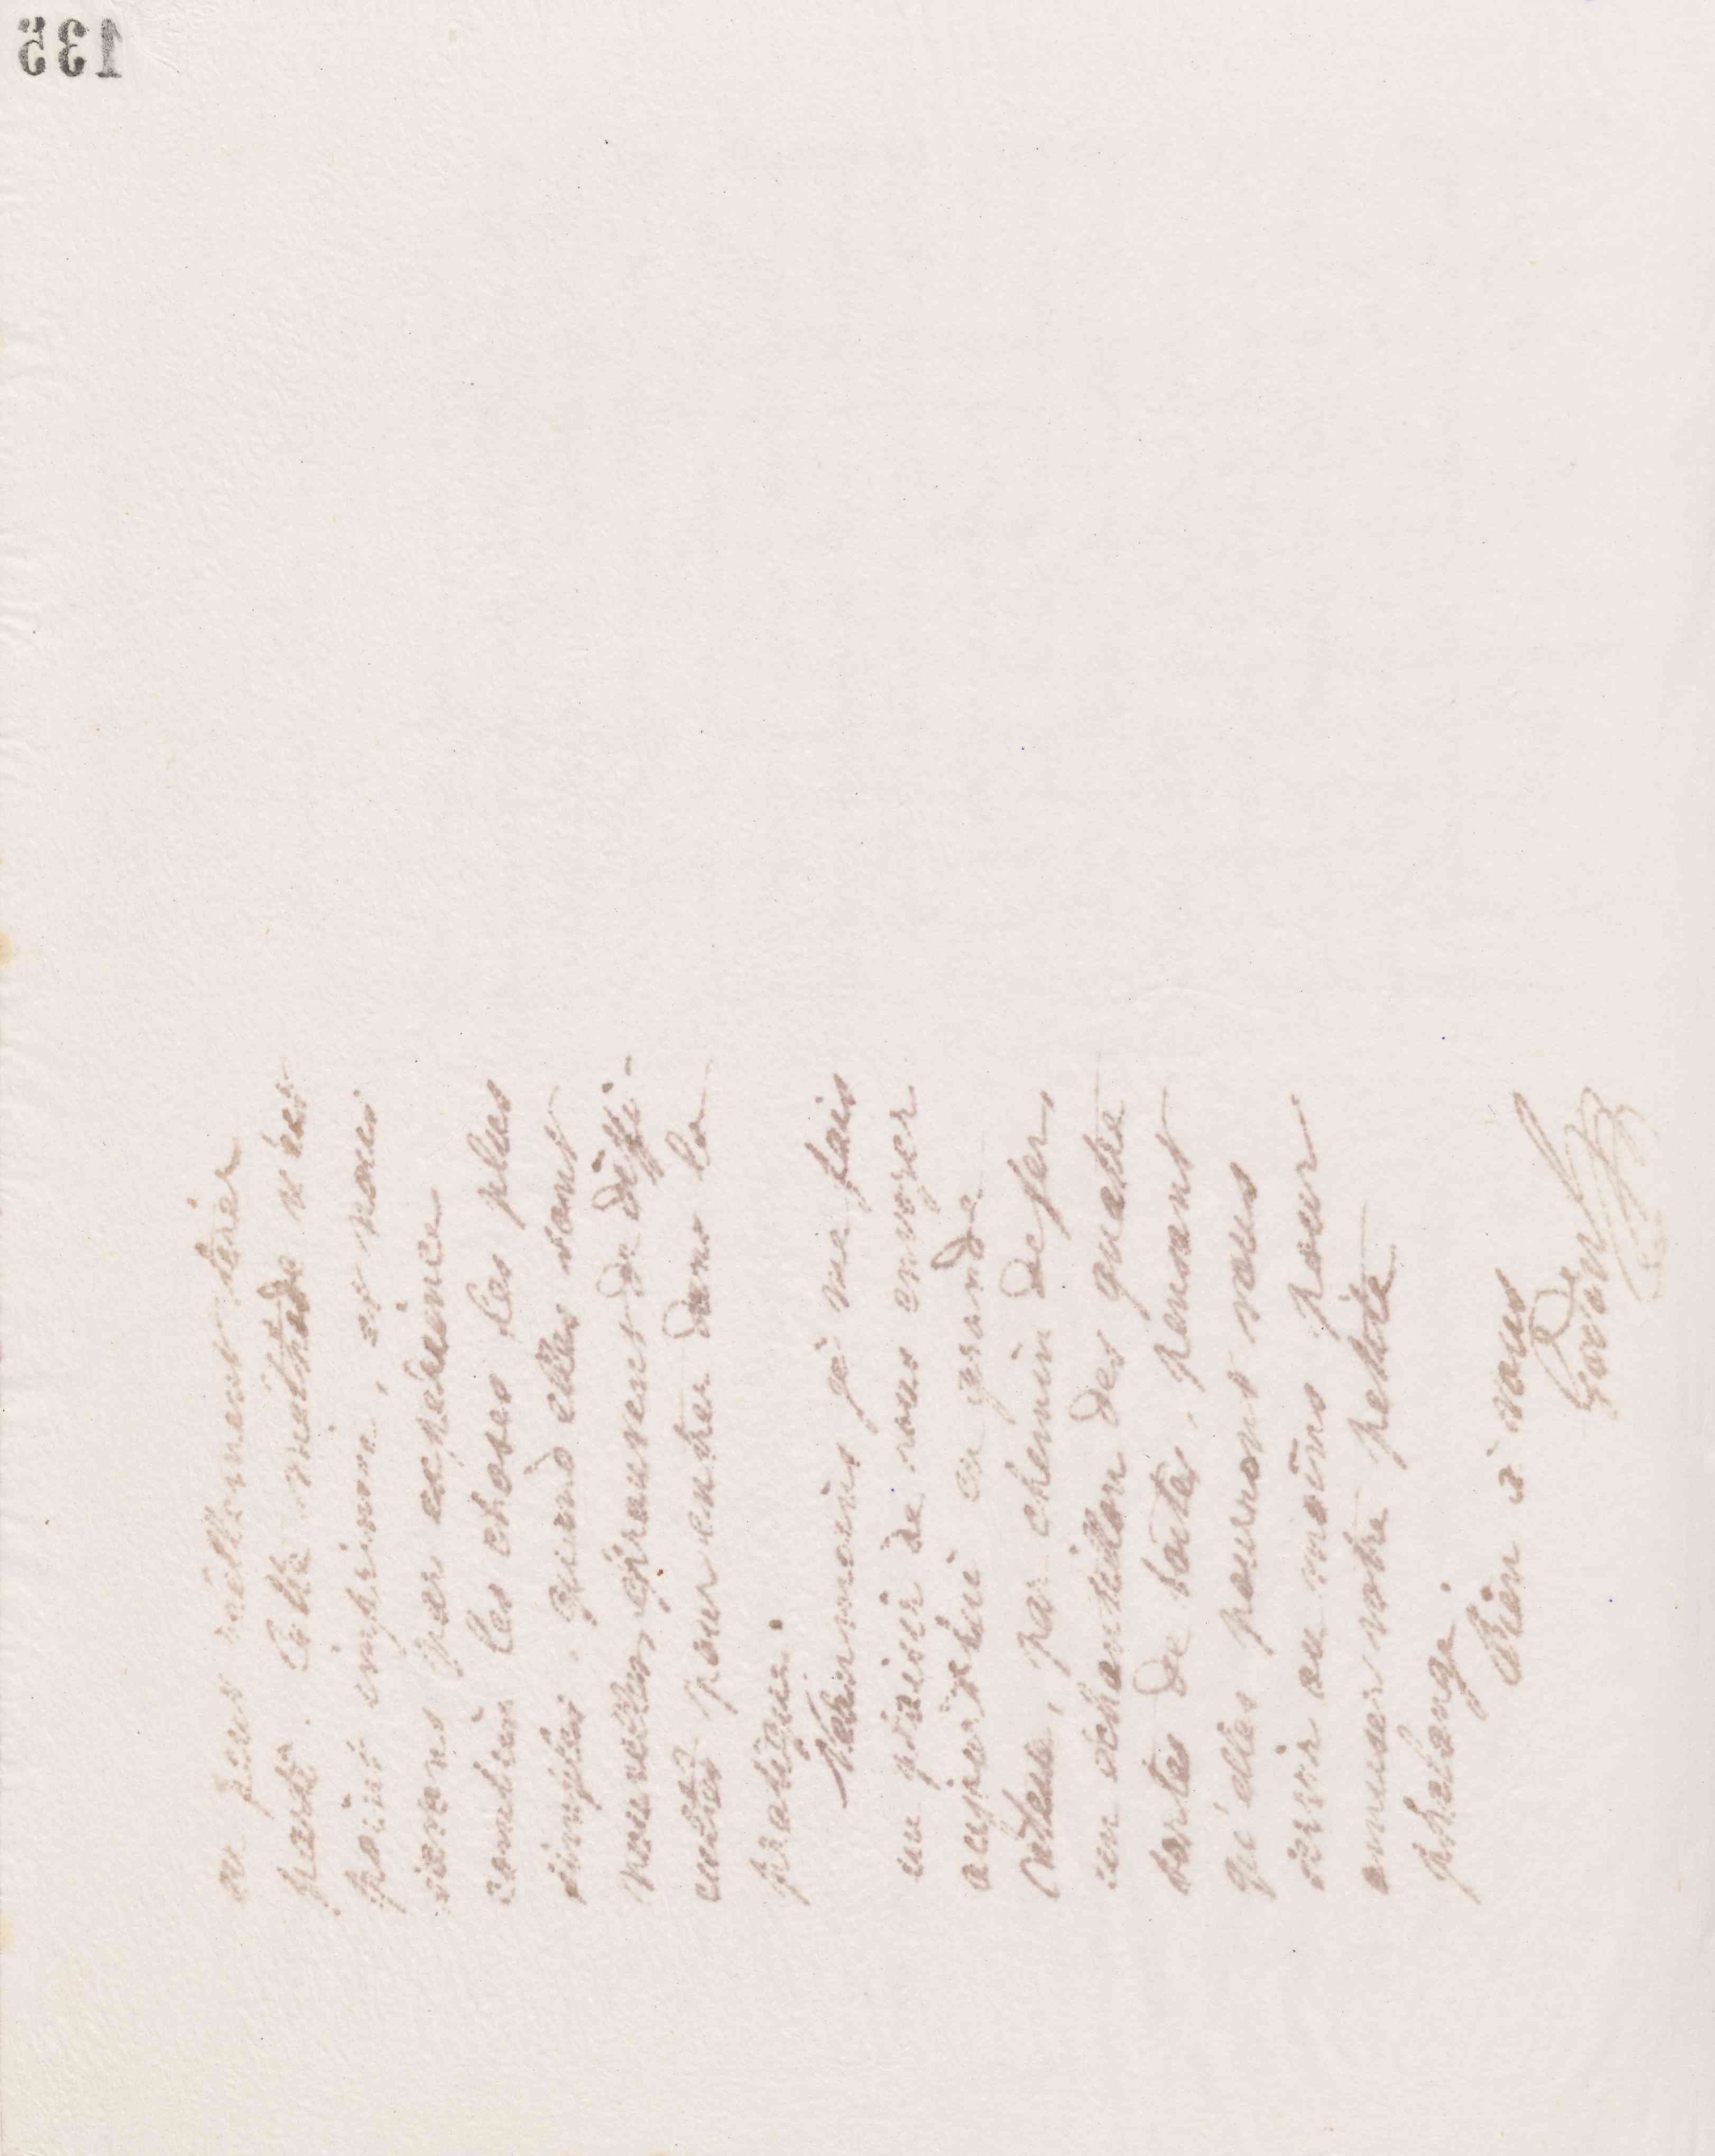 135
on peut réellement tirer
parti. Cette méthode n'est
point imprimée, et nous
savons par expérience
combien les choses les plus
simples, quand elles sont
nouvelles, éprouvent de diffi-
cultés pour entrer dans la
pratique.
Néanmoins je me fais
un plaisir de vous envoyer
aujourd'hui en grande
vitesse, par chemin de fer,
un échantillon des quatre
sortes de boîtes, pensant
qu'elles pourront vous
servir au moins pour
amuser votre petite
phalange.
Bien à vous
Godin